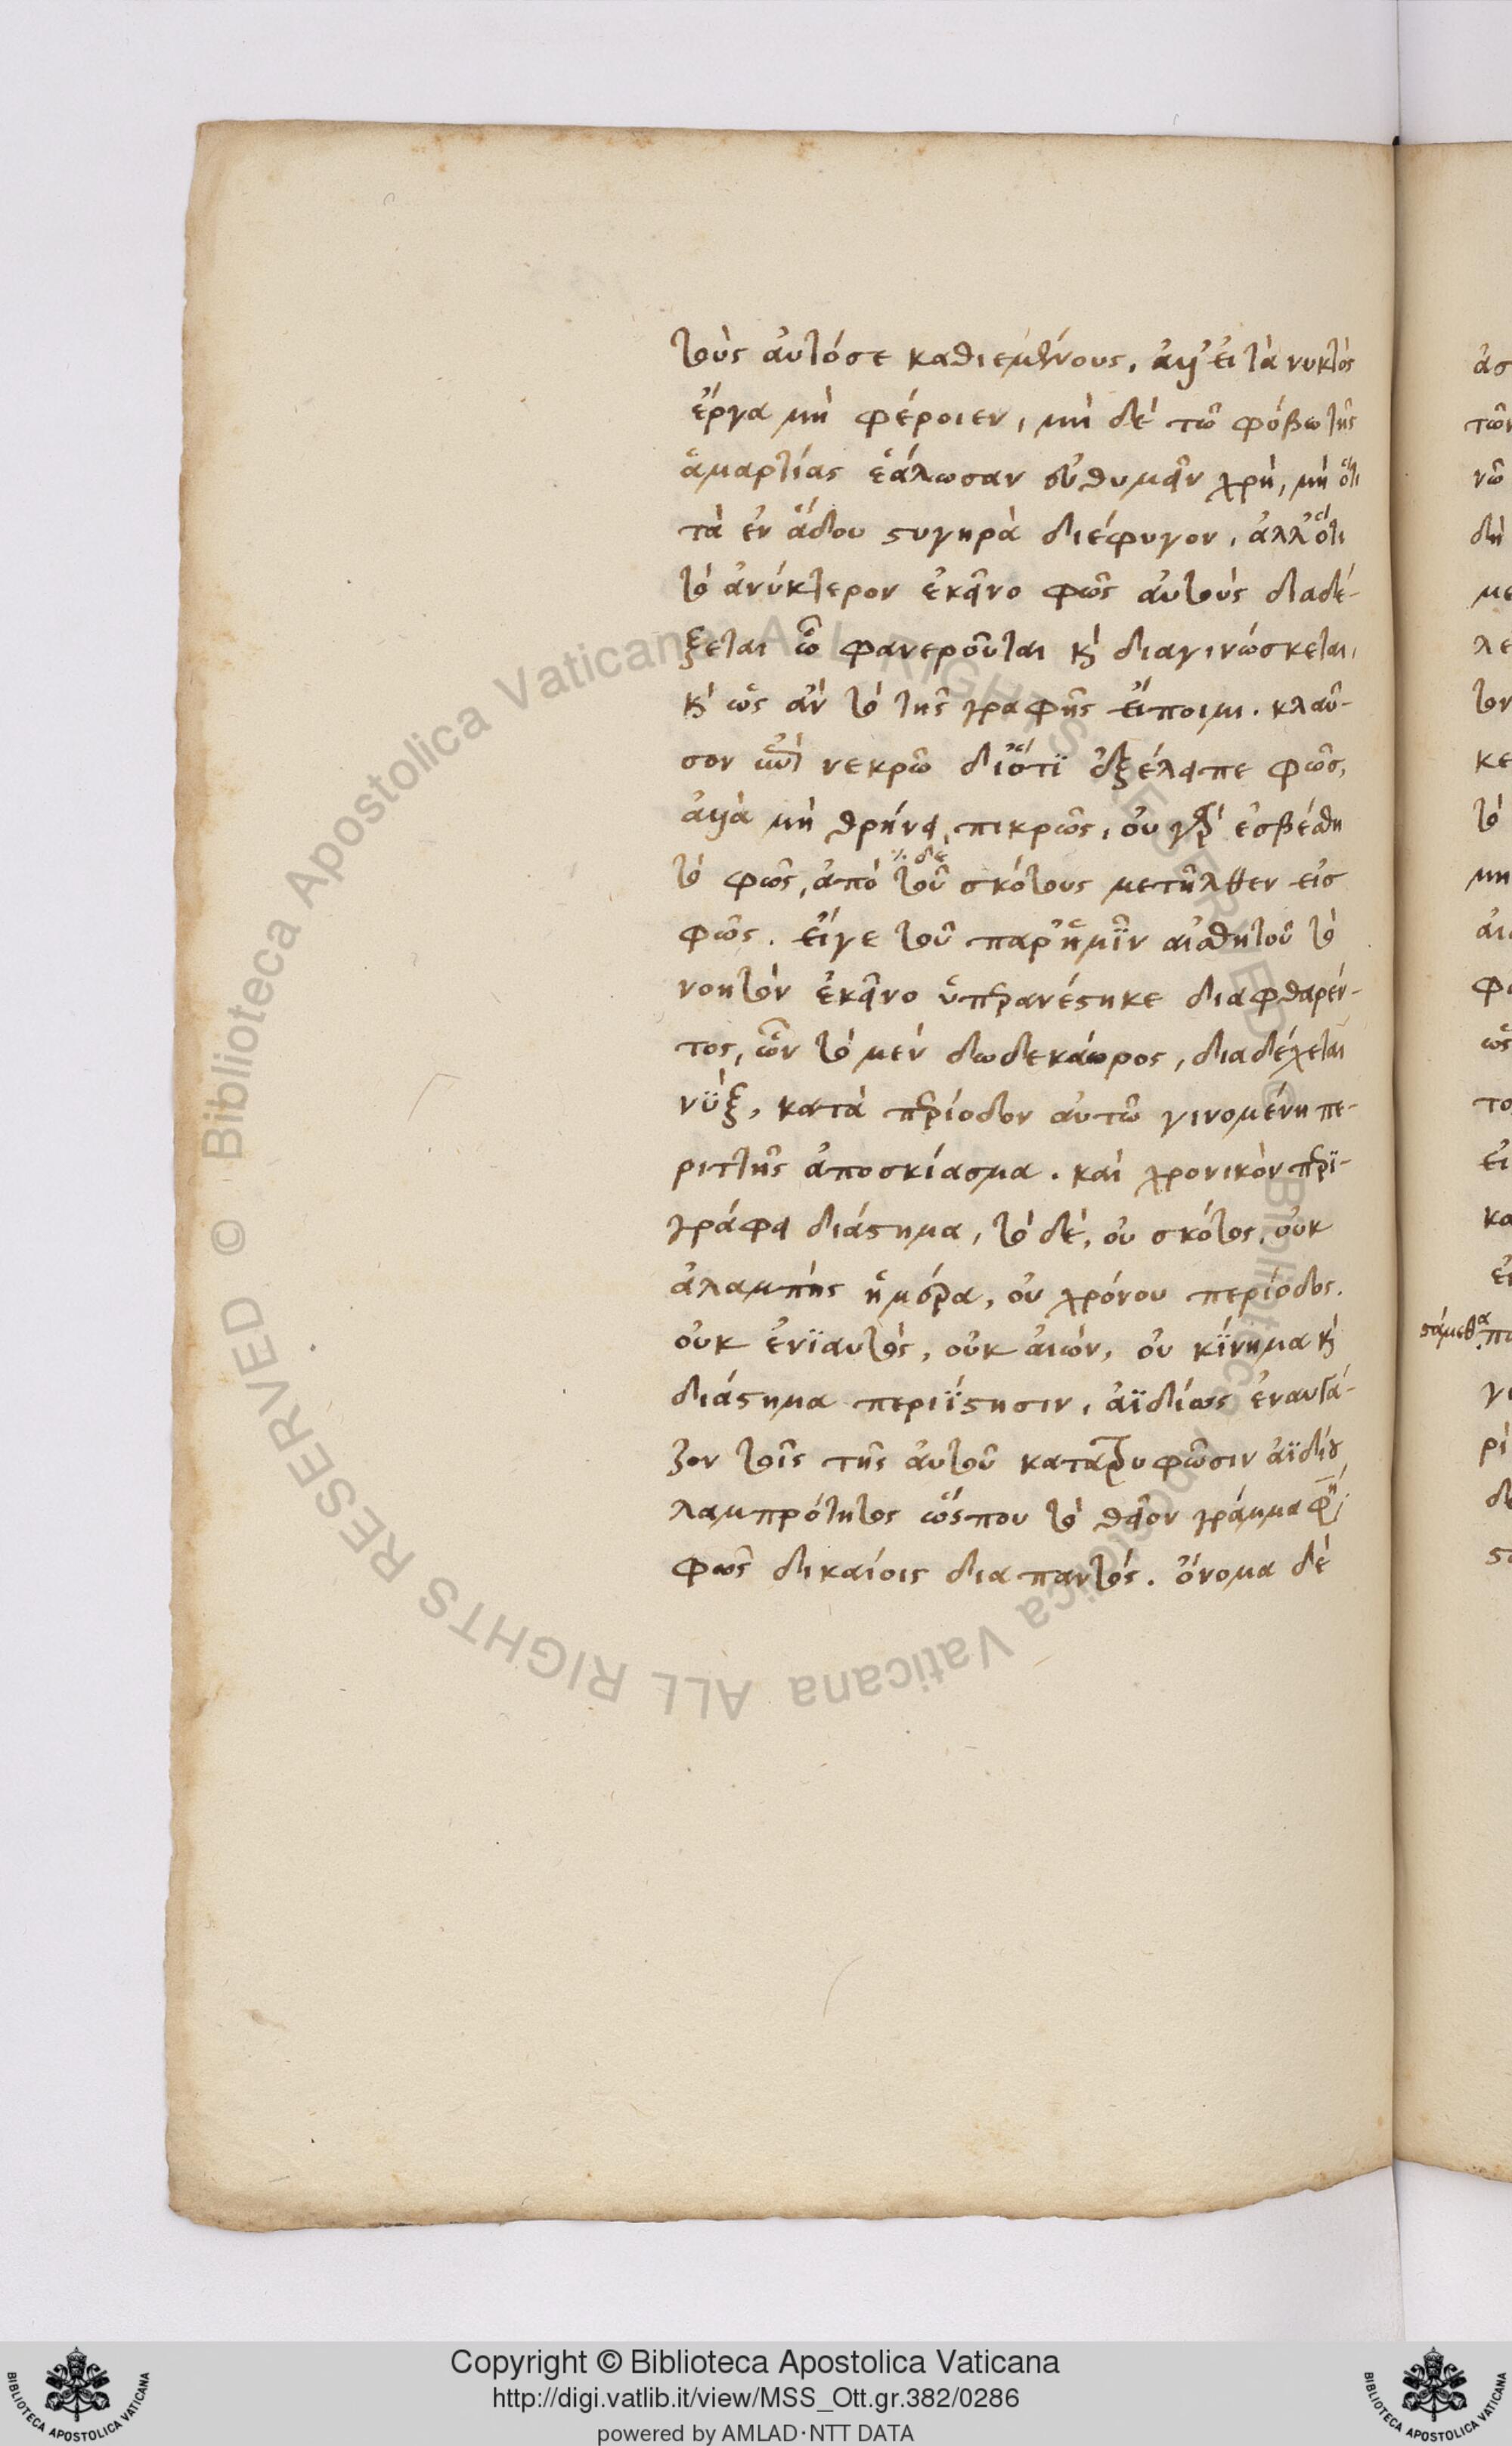 τοὺς αὐτόσε καθιεμένους, ἀλλ' εἰ τὰ νυκτὸς
ἔργα μὴ φέροιεν, μὴ δὲ τῶ φόβω τῆς
ἁμαρτίας ἑάλωσαν εὐθυμεῖν χρὴ, μὴ ὅτι
τὰ ἐν ἅδου στυγηρὰ διέφυγον, ἀλλ' ὅτι
τὸ ἀνύκτερον ἐκεῖνο φῶς αὐτοὺς διαδέ-
ξεται ᾧ φανεροῦται καὶ διαγινώσκεται,
καὶ ὡς ἂν τὸ τῆς γραφῆς εἴποιμι. κλαῦ-
σον νεκρῶ διότι ἐξέλειπε φῶς,
ἀλλὰ μὴ θρήνει πικρῶς, οὐ γὰρ ἐσβέσθη
τὸ φῶς, ἀπὸ δὲ τοῦ σκότους μετῆλθεν εἰς
φῶς. εἴγε τοῦ παρ' ἡμῖν αἰσθητοῦ τὸ
νοητὸν ἐκεῖνο ὑπερανέστηκε διαφθαρέν-
τος, ὧν τὸ μὲν δωδεκάωρος, διαδέχεται
νὺξ, κατὰ περίοδον αὐτῶ γινομένη πε-
ριττῆς ἀποσκίασμα. καὶ χρονικὸν περι-
γράφει διάστημα, τὸ δὲ, οὐ σκότος, οὐκ
ἀλαμπὴς ἡμέρα, οὐ χρόνου περίοδος.
οὐκ ἐνϊαυτὸς, οὐκ αἰών, οὐ κίνημα καὶ
διάστημα περιΐστησιν, ἀϊδίως ἐναυγά-
ζον τοῖς τῆς αὐτοῦ κατατρυφῶσιν ἀϊδίου
λαμπρότητος ὥς που τὸ θεῖον γράμμα φησί
φῶς δικαίοις διαπαντός. ὄνομα δὲ
© Biblioteca Apostolica Vaticana ALL RIGHTS RESERVED © Biblioteca Apostolica Vaticana ALL RIGHTS RESERVED
Copyright © Biblioteca Apostolica Vaticana
http://digi.vatlib.it/view/MSS_Ott.gr.382/0286
powered by AMLAD·NTT DATA
BIBLIOTECA APOSTOLICA VATICANA
BIBLIOTECA APOSTOLICA VATICANA